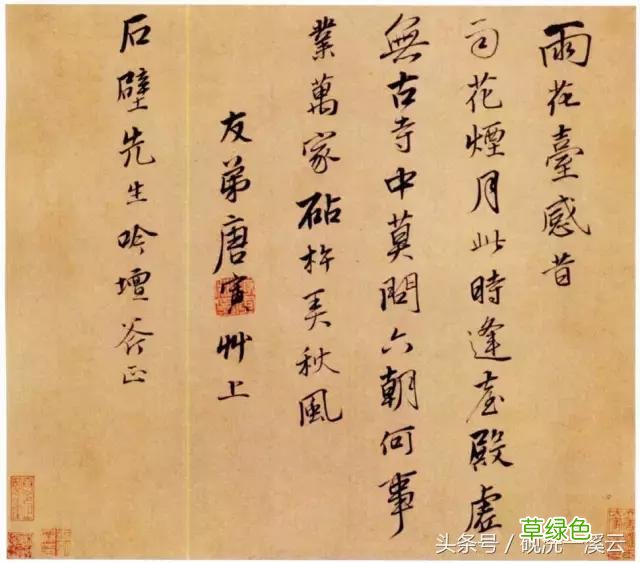 雨花臺感昔
司花煙月此時逢臺殿虛
無古寺中莫問六朝何事
業萬家砧杵美秋風
友弟唐寅艸上
石壁先生吟壇斧正
草绿色
头条号／砚洗一溪云